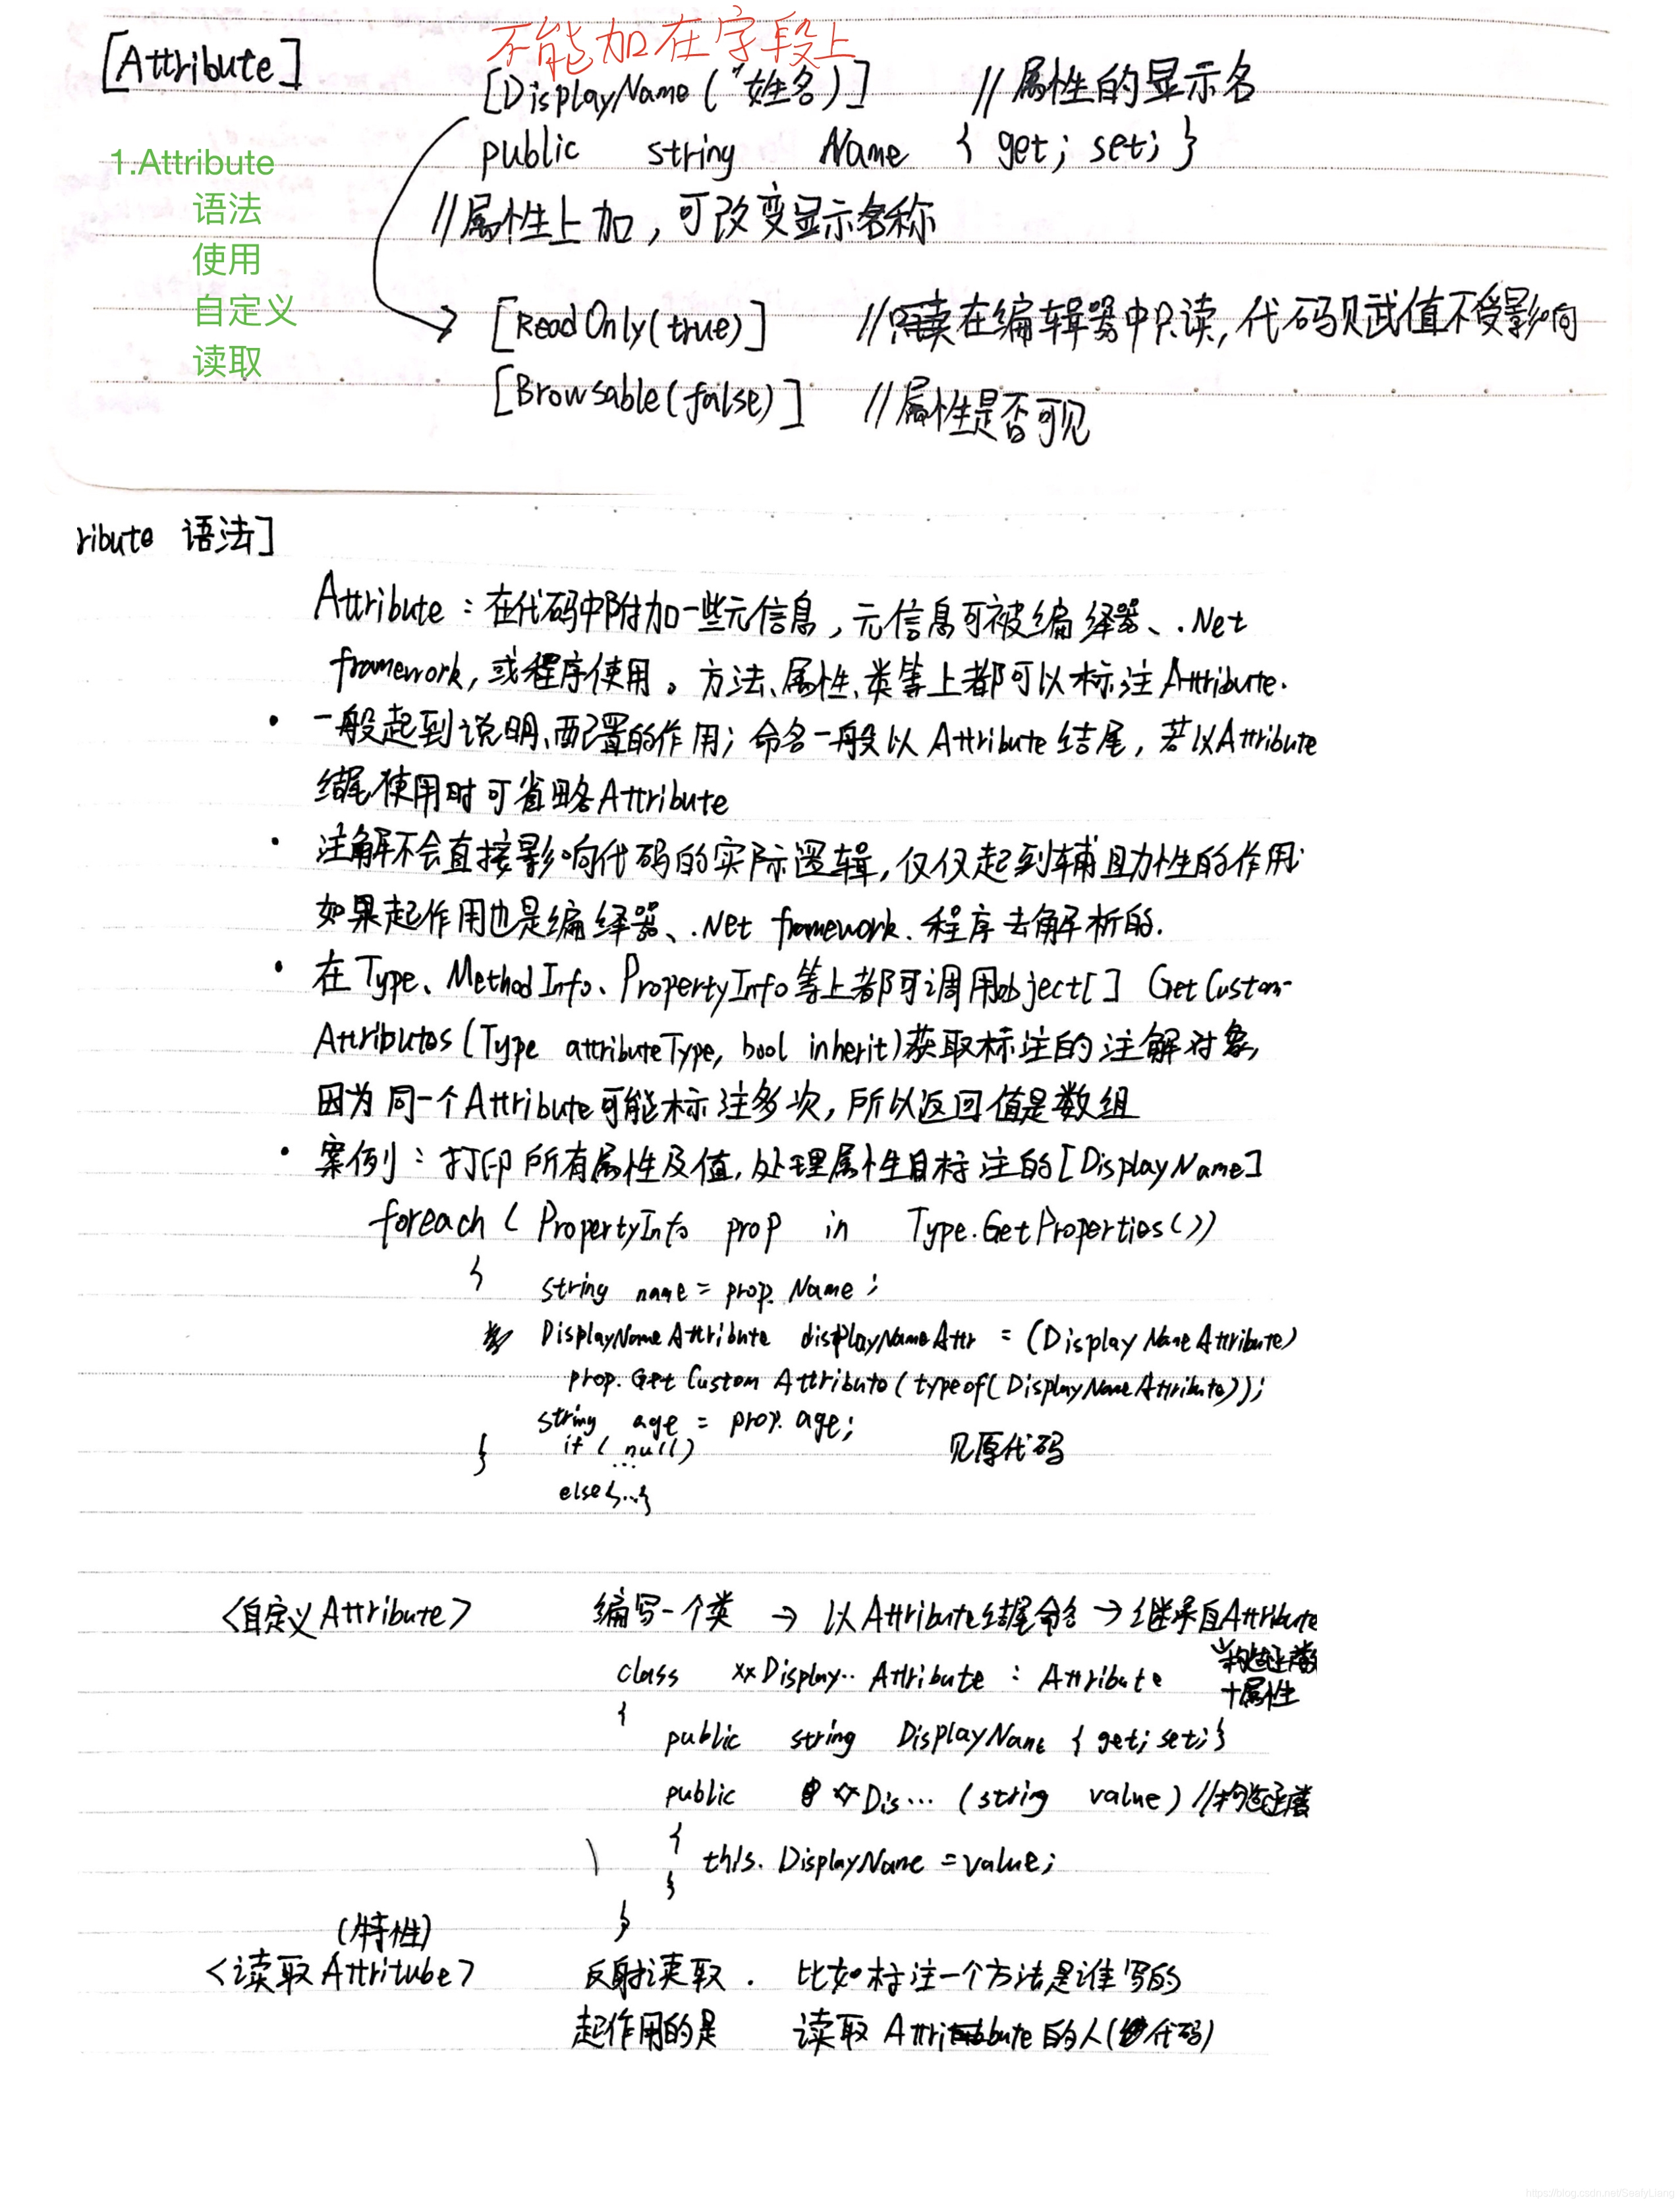 [Attribute]
不能加在字段上
[DisplayName("姓名)] //属性的显示名
1.Attribute
语法
使用
自定义
读取
public string Name { get; set; }
//属性上加,可改变显示名称
[ReadOnly(true)] //只读在编辑器中只读,代码赋值不受影响
[Browsable(false)] //属性是否可见
ribute 语法]
Attribute:在代码中附加一些元信息,元信息可被编绎器、.Net
framework,或程序使用。方法、属性、类等上都可以标注Attribute.
• 一般起到说明、配置的作用;命名一般以Attribute结尾,若以Attribute
结尾使用时可省略Attribute
• 注解不会直接影响代码的实际逻辑,仅仅起到辅助性的作用
如果起作用也是编绎器、.Net framework.程序去解析的.
• 在Type、MethodInfo、PropertyInfo等上都可调用object[] GetCustom-
Attributes(Type attributeType, bool inherit)获取标注的注解对象,
因为同一个Attribute可能标注多次,所以返回值是数组
• 案例:打印所有属性及值,处理属性目标注的[DisplayName]
foreach ( PropertyInfo prop in Type.GetProperties())
{ string name = prop.Name;
DisplayNameAttribute displayNameAttr = (DisplayNameAttribute)
prop.GetCustomAttribute(typeof(DisplayNameAttribute));
string age = prop.age;
} if ( null) 见原代码
...
else{...}
<自定义Attribute> 编写一个类 → 以Attribute结尾命名 → 继承自Attribute
构造函数
+属性
class xxDisplay..Attribute : Attribute
{
public string DisplayName { get; set; }
public xxDis... (string value) //构造函数
{
this.DisplayName = value;
}
}
(特性)
<读取Attritube> 反射读取. 比如标注一个方法是谁写的
起作用的是 读取Attribute的人(代码)
https://blog.csdn.net/SealyLiang